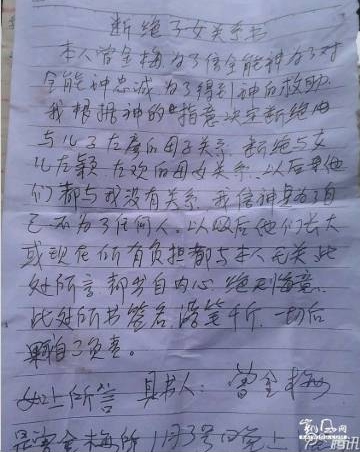 断绝子女关系书
本人曾金梅为了信全能神为了对
全能神忠诚为了得到神的救助
我根据神的"指意决定断绝由
与儿子左彦的母子关系.断绝与女
儿左颖左欢的母女关系.以后果他
们都与我没有关系.我信神是为了自
己不为了任何人.以及后他们长大
或现在所有负担都与本人无关此
处所言都发自内心.绝不悔意.
此处所书签名.落笔千斤.一切后
果自己负责.
如上所言 具书人: 曾金梅
是曾金梅所 1月3号晚上
腾讯